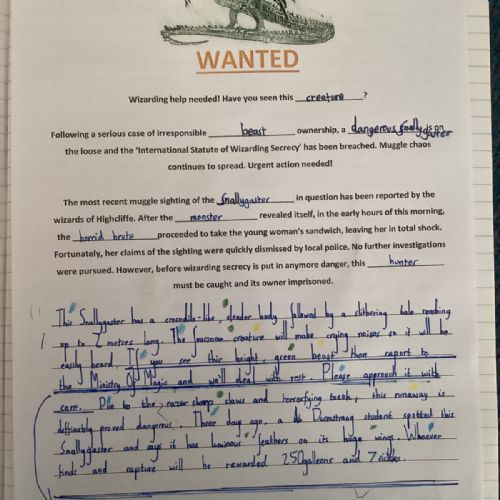 WANTED
Wizarding help needed! Have you seen this creature ?
Following a serious case of irresponsible beast ownership, a dangerous Snallygaster is on
the loose and the 'International Statute of Wizarding Secrecy' has been breached. Muggle chaos
continues to spread. Urgent action needed!
The most recent muggle sighting of the Snallygaster in question has been reported by the
wizards of Highcliffe. After the monster revealed itself, in the early hours of this morning,
the horrid brute proceeded to take the young woman's sandwich, leaving her in total shock.
Fortunately, her claims of the sighting were quickly dismissed by local police. No further investigations
were pursued. However, before wizarding secrecy is put in anymore danger, this hunter
must be caught and its owner imprisoned.
This Snallygaster has a crocodile-like, slender body followed by a slithering tale reaching
up to 2 metres long. The fearsome creature will make crying noises so it will be
easily heard. If you see this bright, green beast then report to
the Ministry Of Magic and we'll deal with rest. Please approach it with
care. Due to the razor sharp claws and terrorfying teeth, this runaway is
deffinately proved dangerous. Three days ago, a Durmstrang student spotted this
Snallygaster and says it has luminous feathers on its huge wings. Whoever
finds and capture will be rewarded 250galleons and 7 sickles.